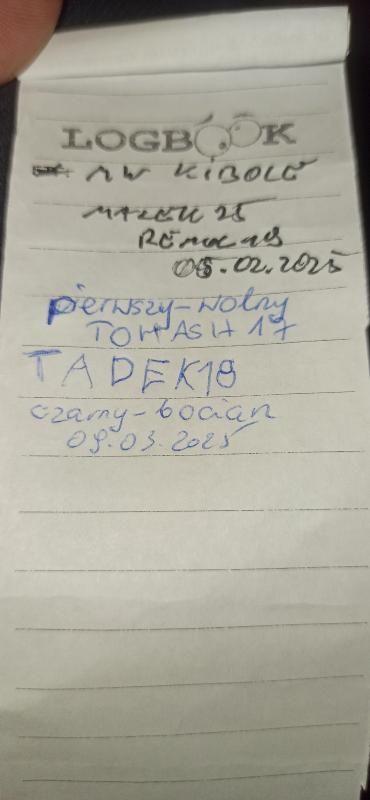 LOGBOOK
MW KIBOLE
MAREK 25
REMOL 19
05.02.2025
pierwszy-wolny
TOMASH 17
TADEK18
czarny-bocian
09.03.2025